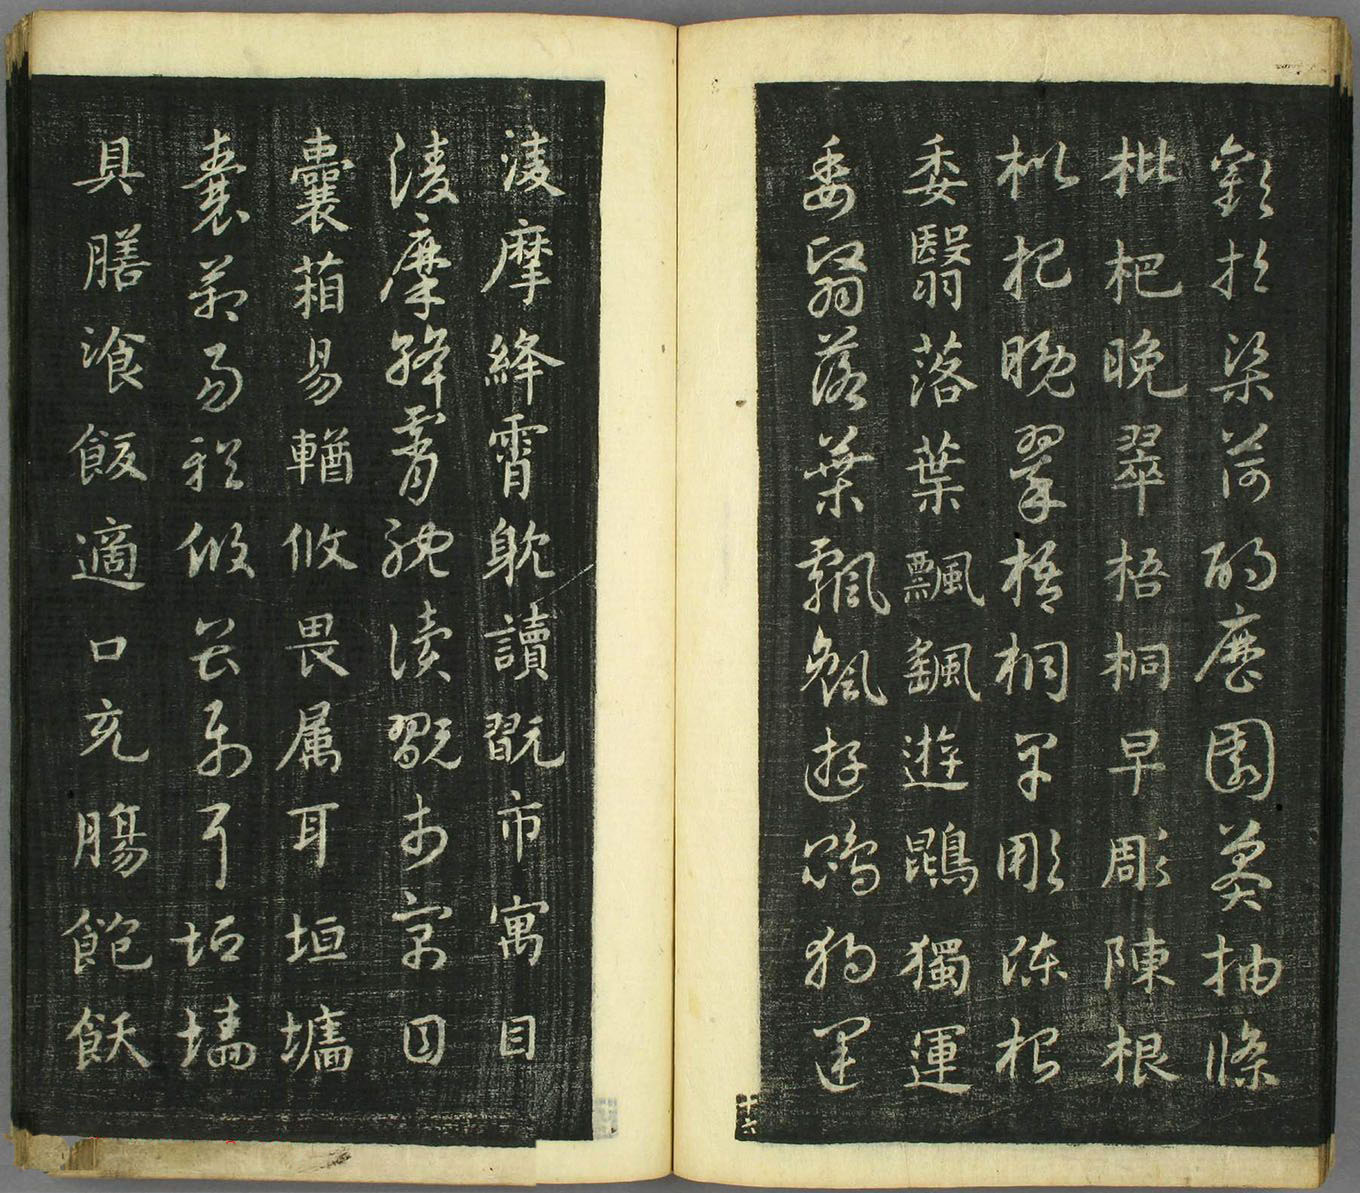 歡招渠荷的歷園莽抽條
枇杷晚翠梧桐早彫陳根
枇杷晚翠梧桐早彫陳根
委翳落葉飄颻遊鵾獨運
委翳落葉飄颻遊鵾獨運
十六
淩摩絳霄躭讀翫市寓目
淩摩絳霄躭讀翫市寓目
囊葙易輶攸畏属耳垣墻
囊葙易輶攸畏属耳垣墻
具膳湌飯適口充腸飽飫